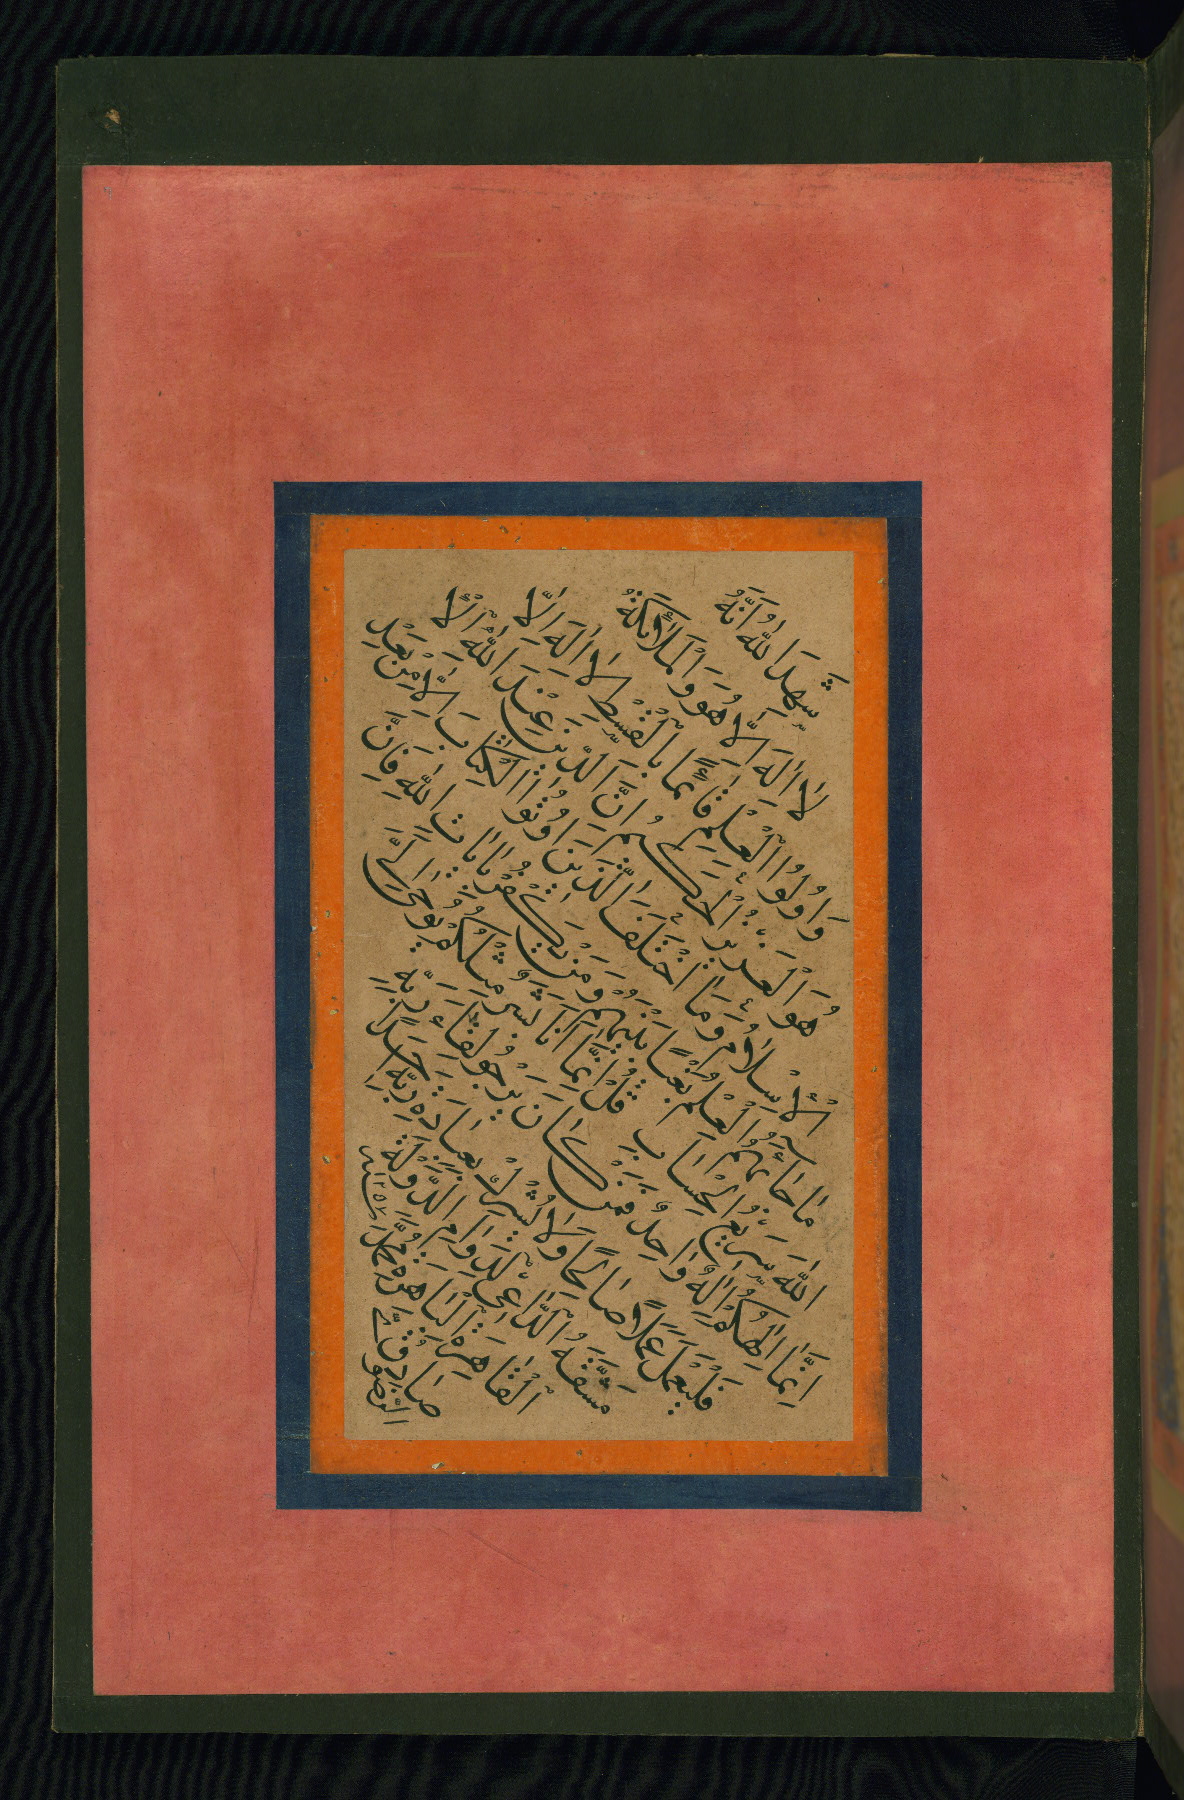 شَهِدَ اللهُ اَنَّهُ
لَا اِلٰهَ اِلَّا هُوَ وَالْمَلَائِكَةُ
وَاُولُوا الْعِلْمِ قَائِمًا بِالْقِسْطِ لَا اِلٰهَ اِلَّا
هُوَ الْعَزِيزُ الْحَكِيمُ اِنَّ الدِّينَ عِنْدَ اللهِ الْا
الْاِسْلَامُ وَمَا اخْتَلَفَ الَّذِينَ اُوتُوا الْكِتَابَ اِلَّا مِنْ بَعْدِ
مَا جَاءَهُمُ الْعِلْمُ بَغْيًا بَيْنَهُمْ وَمَنْ يَكْفُرْ بِاٰيَاتِ اللهِ فَاِنَّ
اللهَ سَرِيعُ الْحِسَابِ قُلْ اِنَّمَا اَنَا بَشَرٌ مِثْلُكُمْ يُوحٰى اِلَيَّ
اَنَّمَا اِلٰهُكُمْ اِلٰهٌ وَاحِدٌ فَمَنْ كَانَ يَرْجُو لِقَاءَ رَبِّهِ
فَلْيَعْمَلْ عَمَلًا صَالِحًا وَلَا يُشْرِكْ بِعِبَادَةِ رَبِّهِ اَحَدًا
مَشَقَهُ الدَّاعِي لِدَوَامِ الدَّوْلَةِ
الْقَاهِرَةِ الْبَاهِرَةِ مُحَمَّد
صَادِق
سنة ١٢٥٧